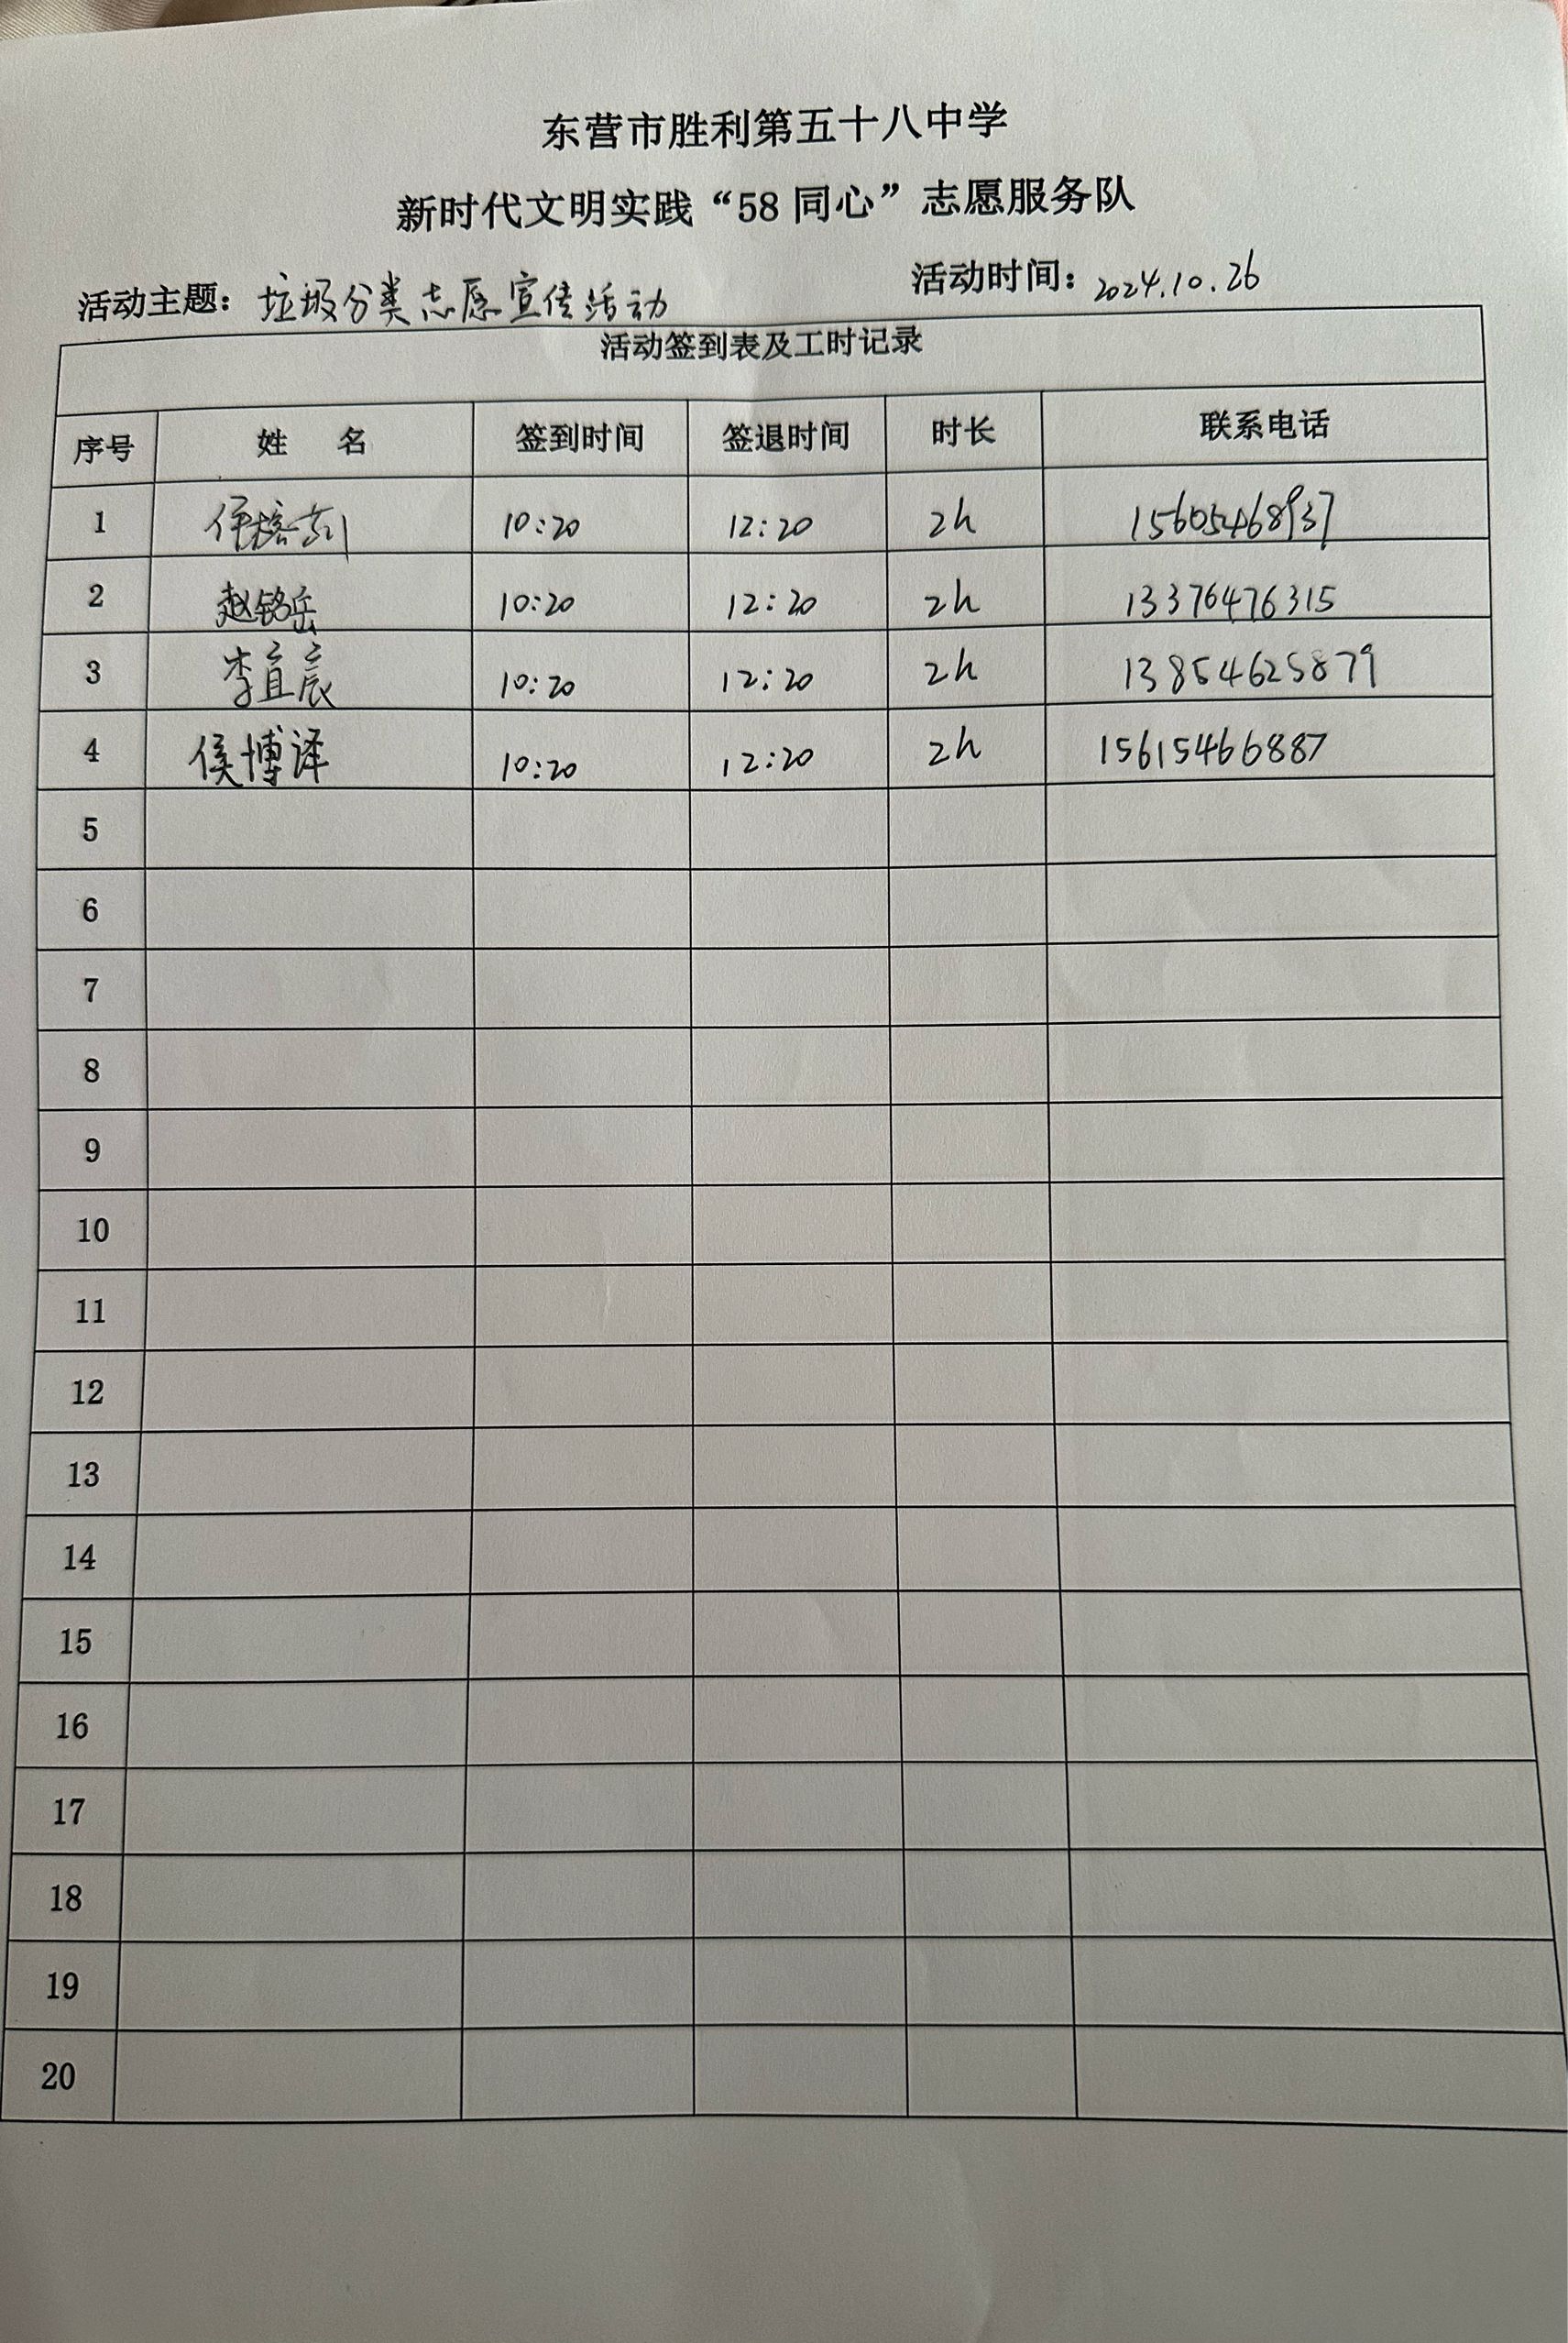 东营市胜利第五十八中学
新时代文明实践“58 同心”志愿服务队
活动主题：垃圾分类志愿宣传活动 活动时间：2024.10.26
活动签到表及工时记录
序号 姓 名 签到时间 签退时间 时长 联系电话
1 10:20 12:20 2h 15605468937
2 赵铭岳 10:20 12:20 2h 13376476315
3 李宜宸 10:20 12:20 2h 13854625879
4 侯博译 10:20 12:20 2h 15615466887
5
6
7
8
9
10
11
12
13
14
15
16
17
18
19
20